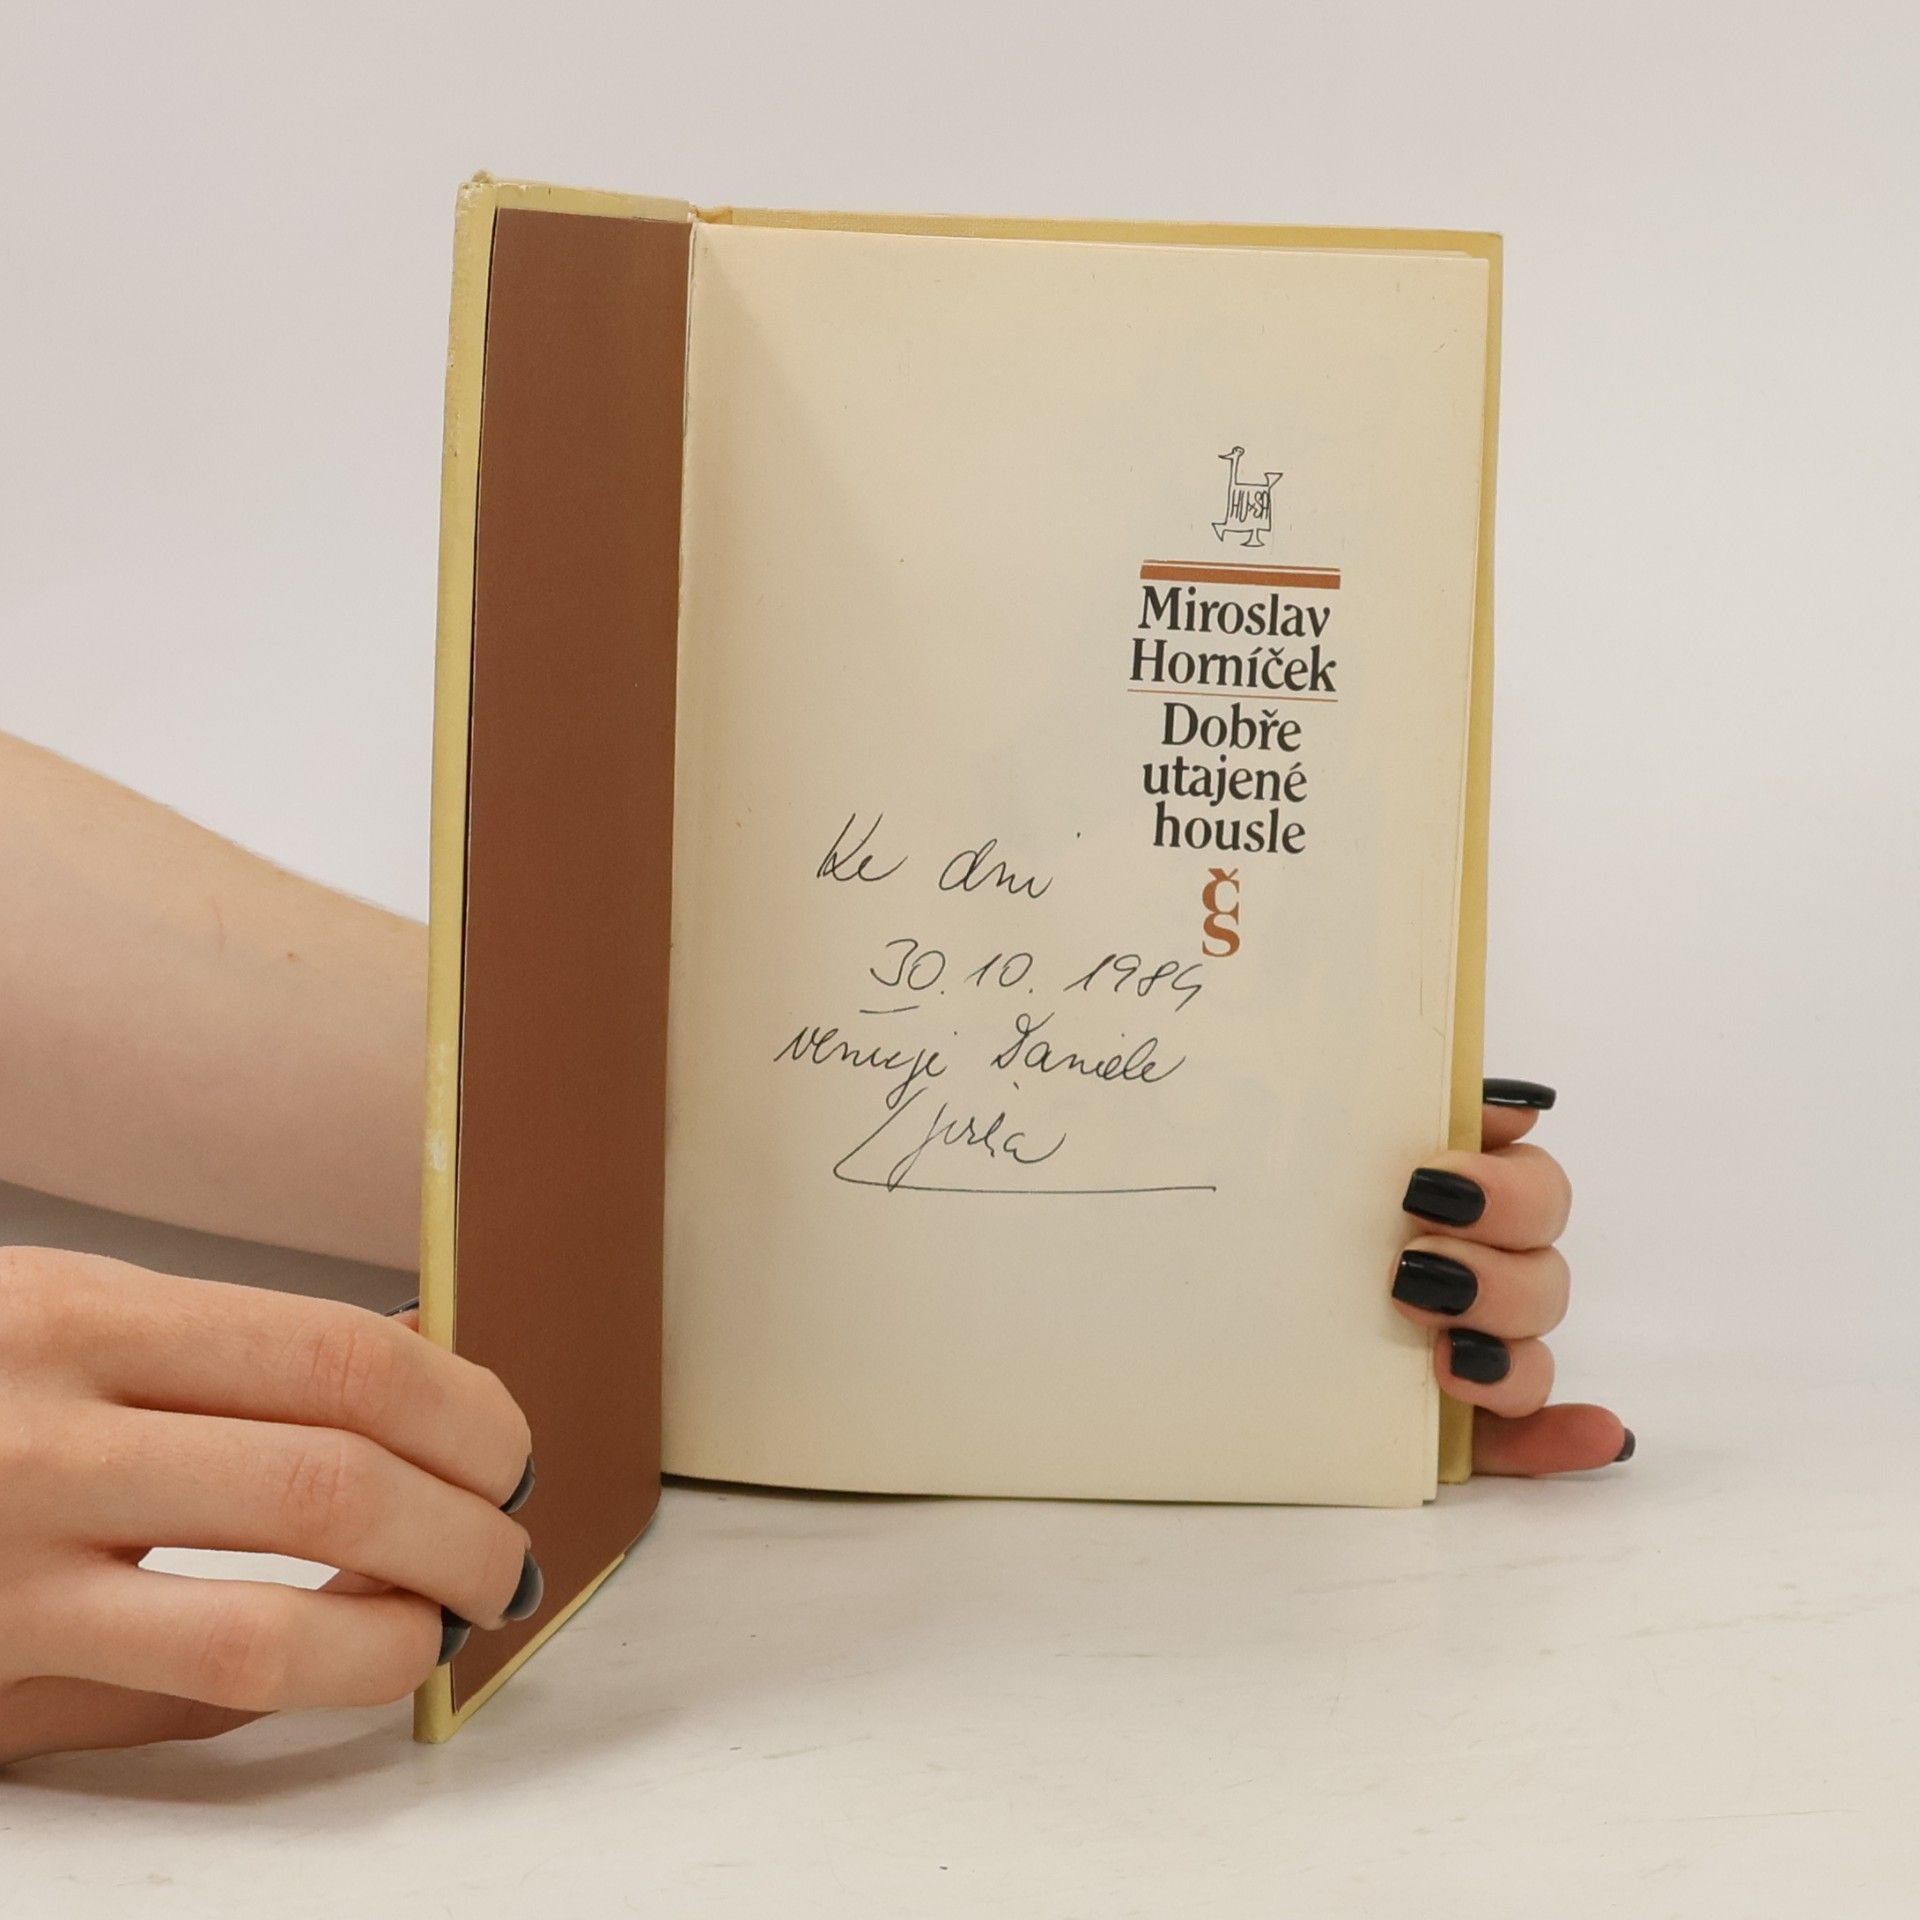 HUSA
Miroslav
Horníček
Dobře
utajené
housle
Č
S
Ke dni
30. 10. 1984
venuje Daniele
Jirka